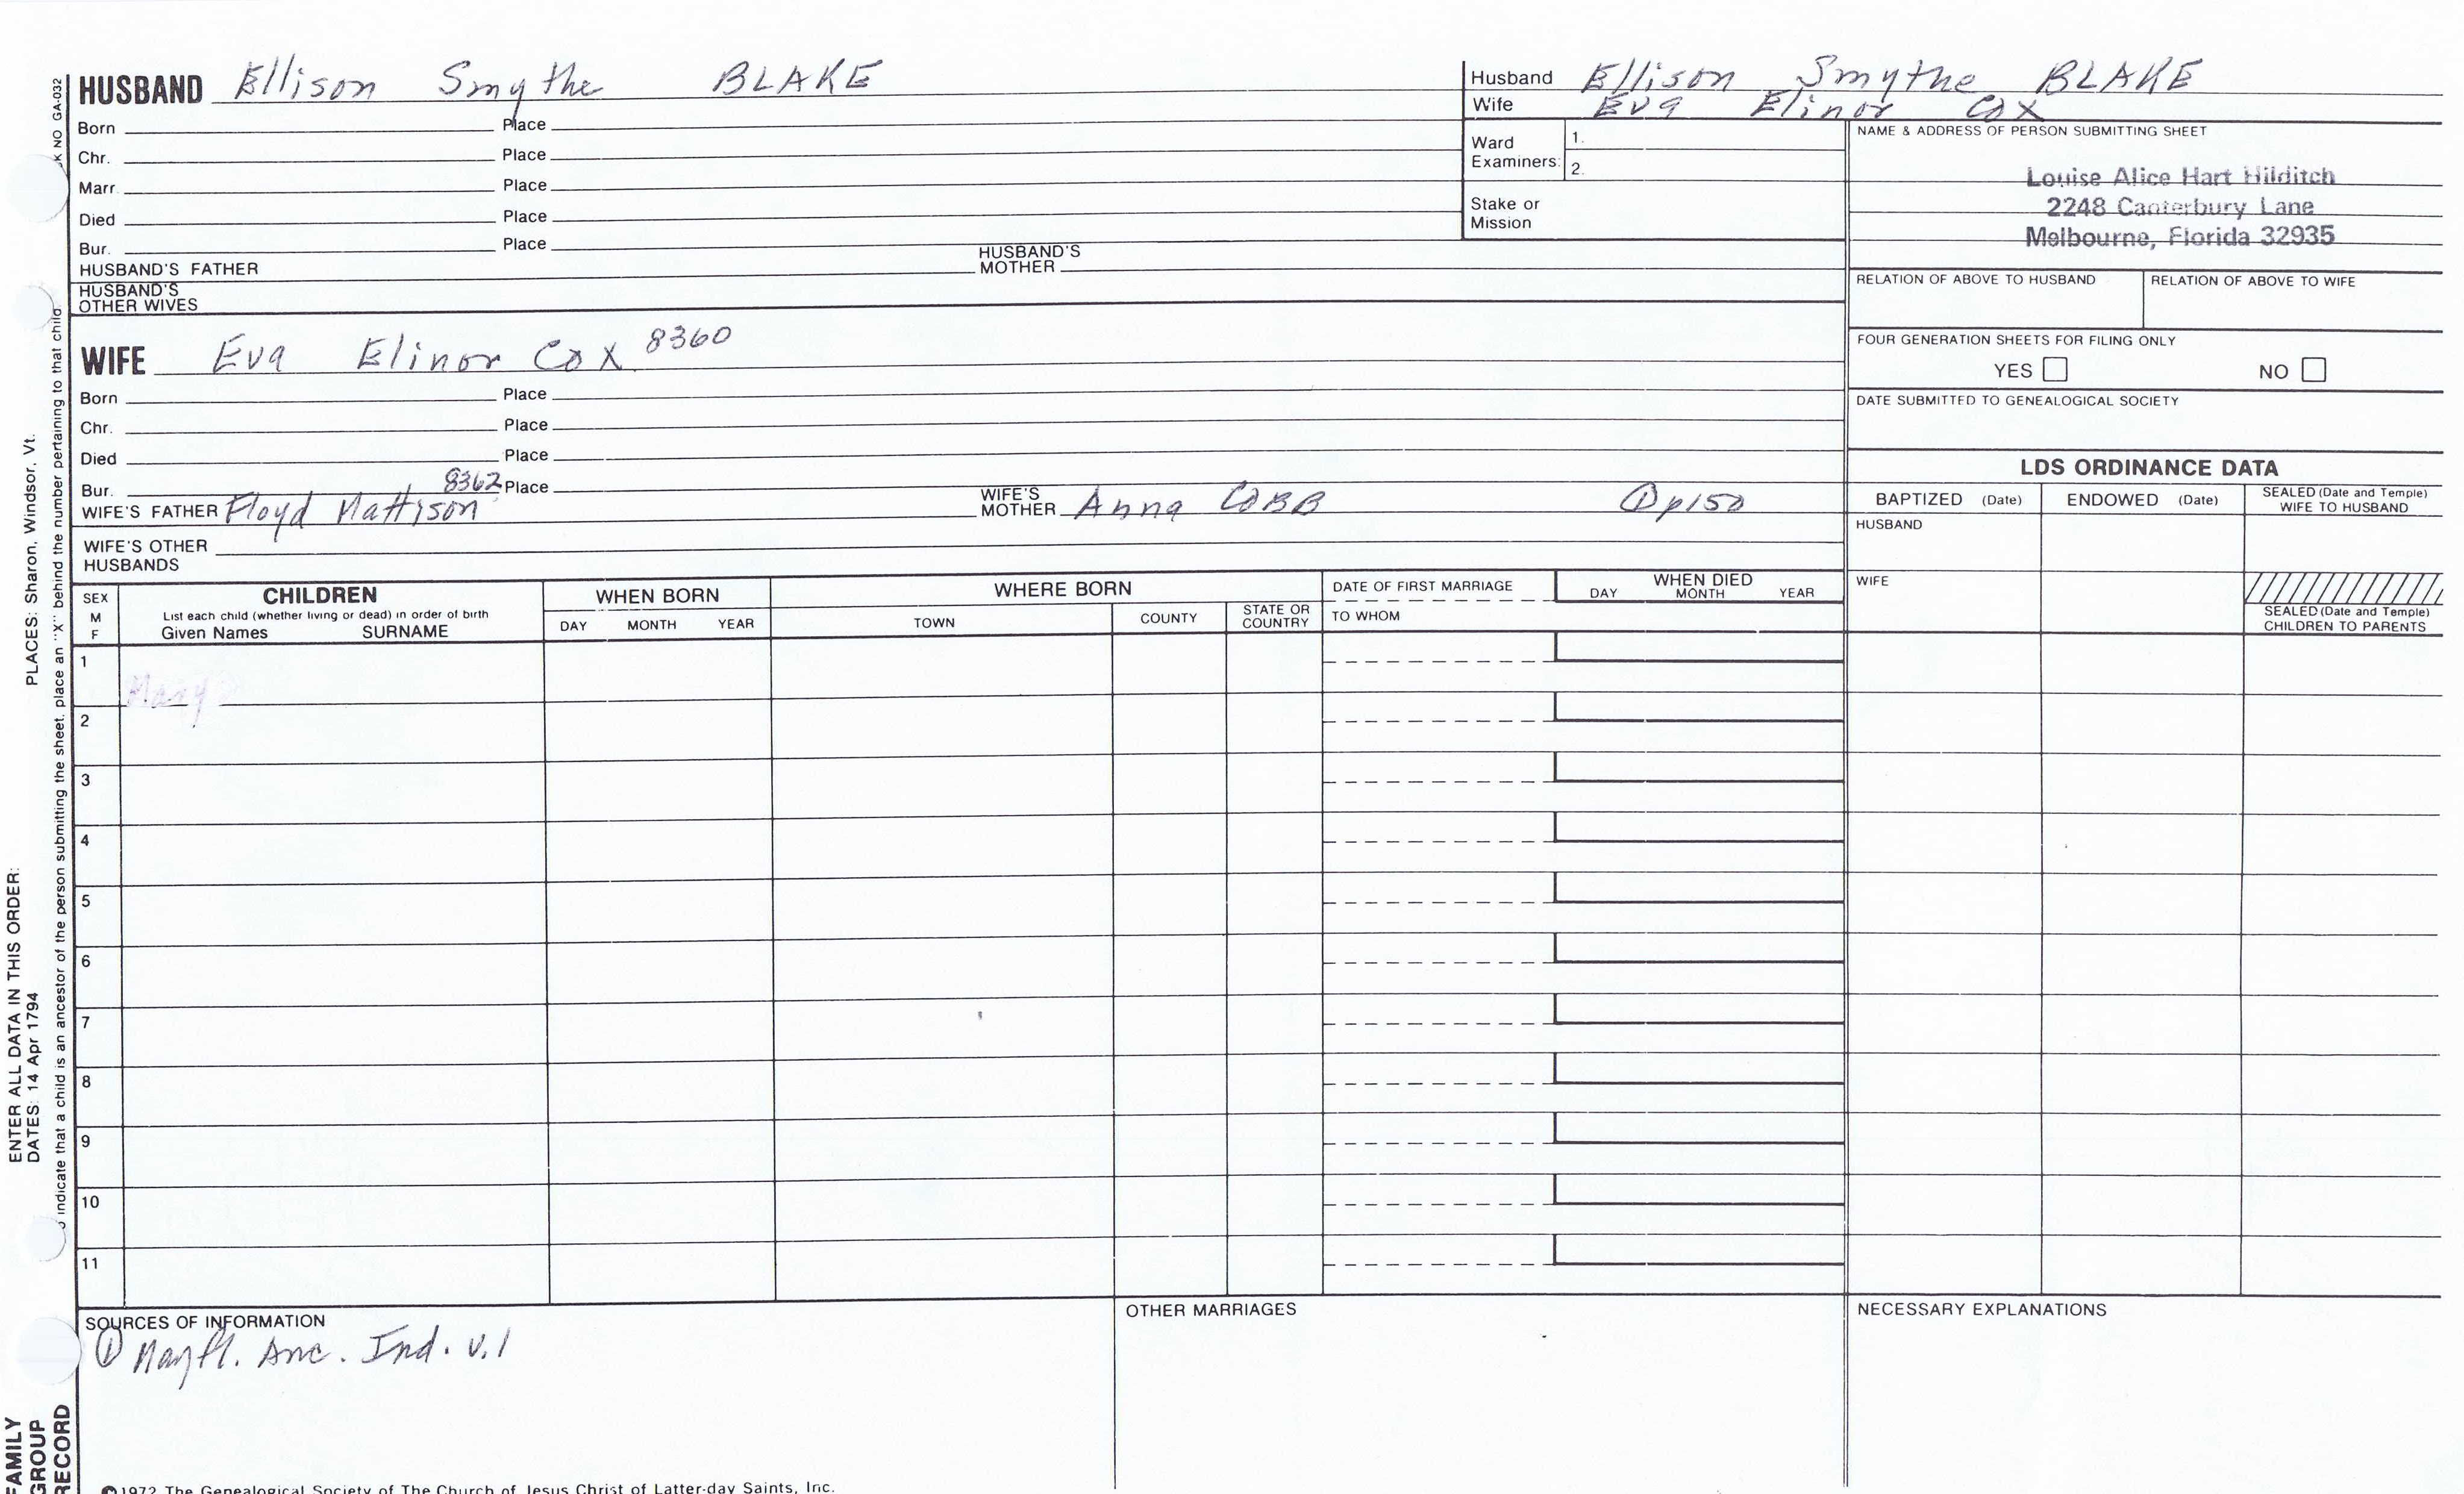 HUSBAND Ellison Smythe BLAKE
Born Place
Chr. Place
Marr. Place
Died Place
Bur. Place
HUSBAND'S FATHER HUSBAND'S MOTHER
HUSBAND'S OTHER WIVES
WIFE Eva Elinor Cox 8360
Born Place
Chr. Place
Died Place
Bur. 8362 Place
WIFE'S FATHER Floyd Mattison WIFE'S MOTHER Anna COBB ① p150
WIFE'S OTHER HUSBANDS
Husband Ellison Smythe BLAKE
Wife Eva Elinor Cox
Ward Examiners: 1.
2.
Stake or Mission
NAME & ADDRESS OF PERSON SUBMITTING SHEET
Louise Alice Hart Hilditch
2248 Canterbury Lane
Melbourne, Florida 32935
RELATION OF ABOVE TO HUSBAND RELATION OF ABOVE TO WIFE
FOUR GENERATION SHEETS FOR FILING ONLY
YES NO
DATE SUBMITTED TO GENEALOGICAL SOCIETY
LDS ORDINANCE DATA
BAPTIZED (Date) ENDOWED (Date) SEALED (Date and Temple) WIFE TO HUSBAND
HUSBAND
WIFE
SEALED (Date and Temple) CHILDREN TO PARENTS
SEX M F CHILDREN WHEN BORN WHERE BORN DATE OF FIRST MARRIAGE WHEN DIED
List each child (whether living or dead) in order of birth
Given Names SURNAME DAY MONTH YEAR TOWN COUNTY STATE OR COUNTRY TO WHOM DAY MONTH YEAR
1
Mary
2
3
4
5
6
7
8
9
10
11
SOURCES OF INFORMATION OTHER MARRIAGES NECESSARY EXPLANATIONS
① Mayfl. Anc. Ind. v.1
©1972 The Genealogical Society of The Church of Jesus Christ of Latter-day Saints, Inc.
FAMILY
GROUP
RECORD
ENTER ALL DATA IN THIS ORDER:
DATES: 14 Apr 1794 PLACES: Sharon, Windsor, Vt.
indicate that a child is an ancestor of the person submitting the sheet, place an "X" behind the number pertaining to that child.
NO GA-032